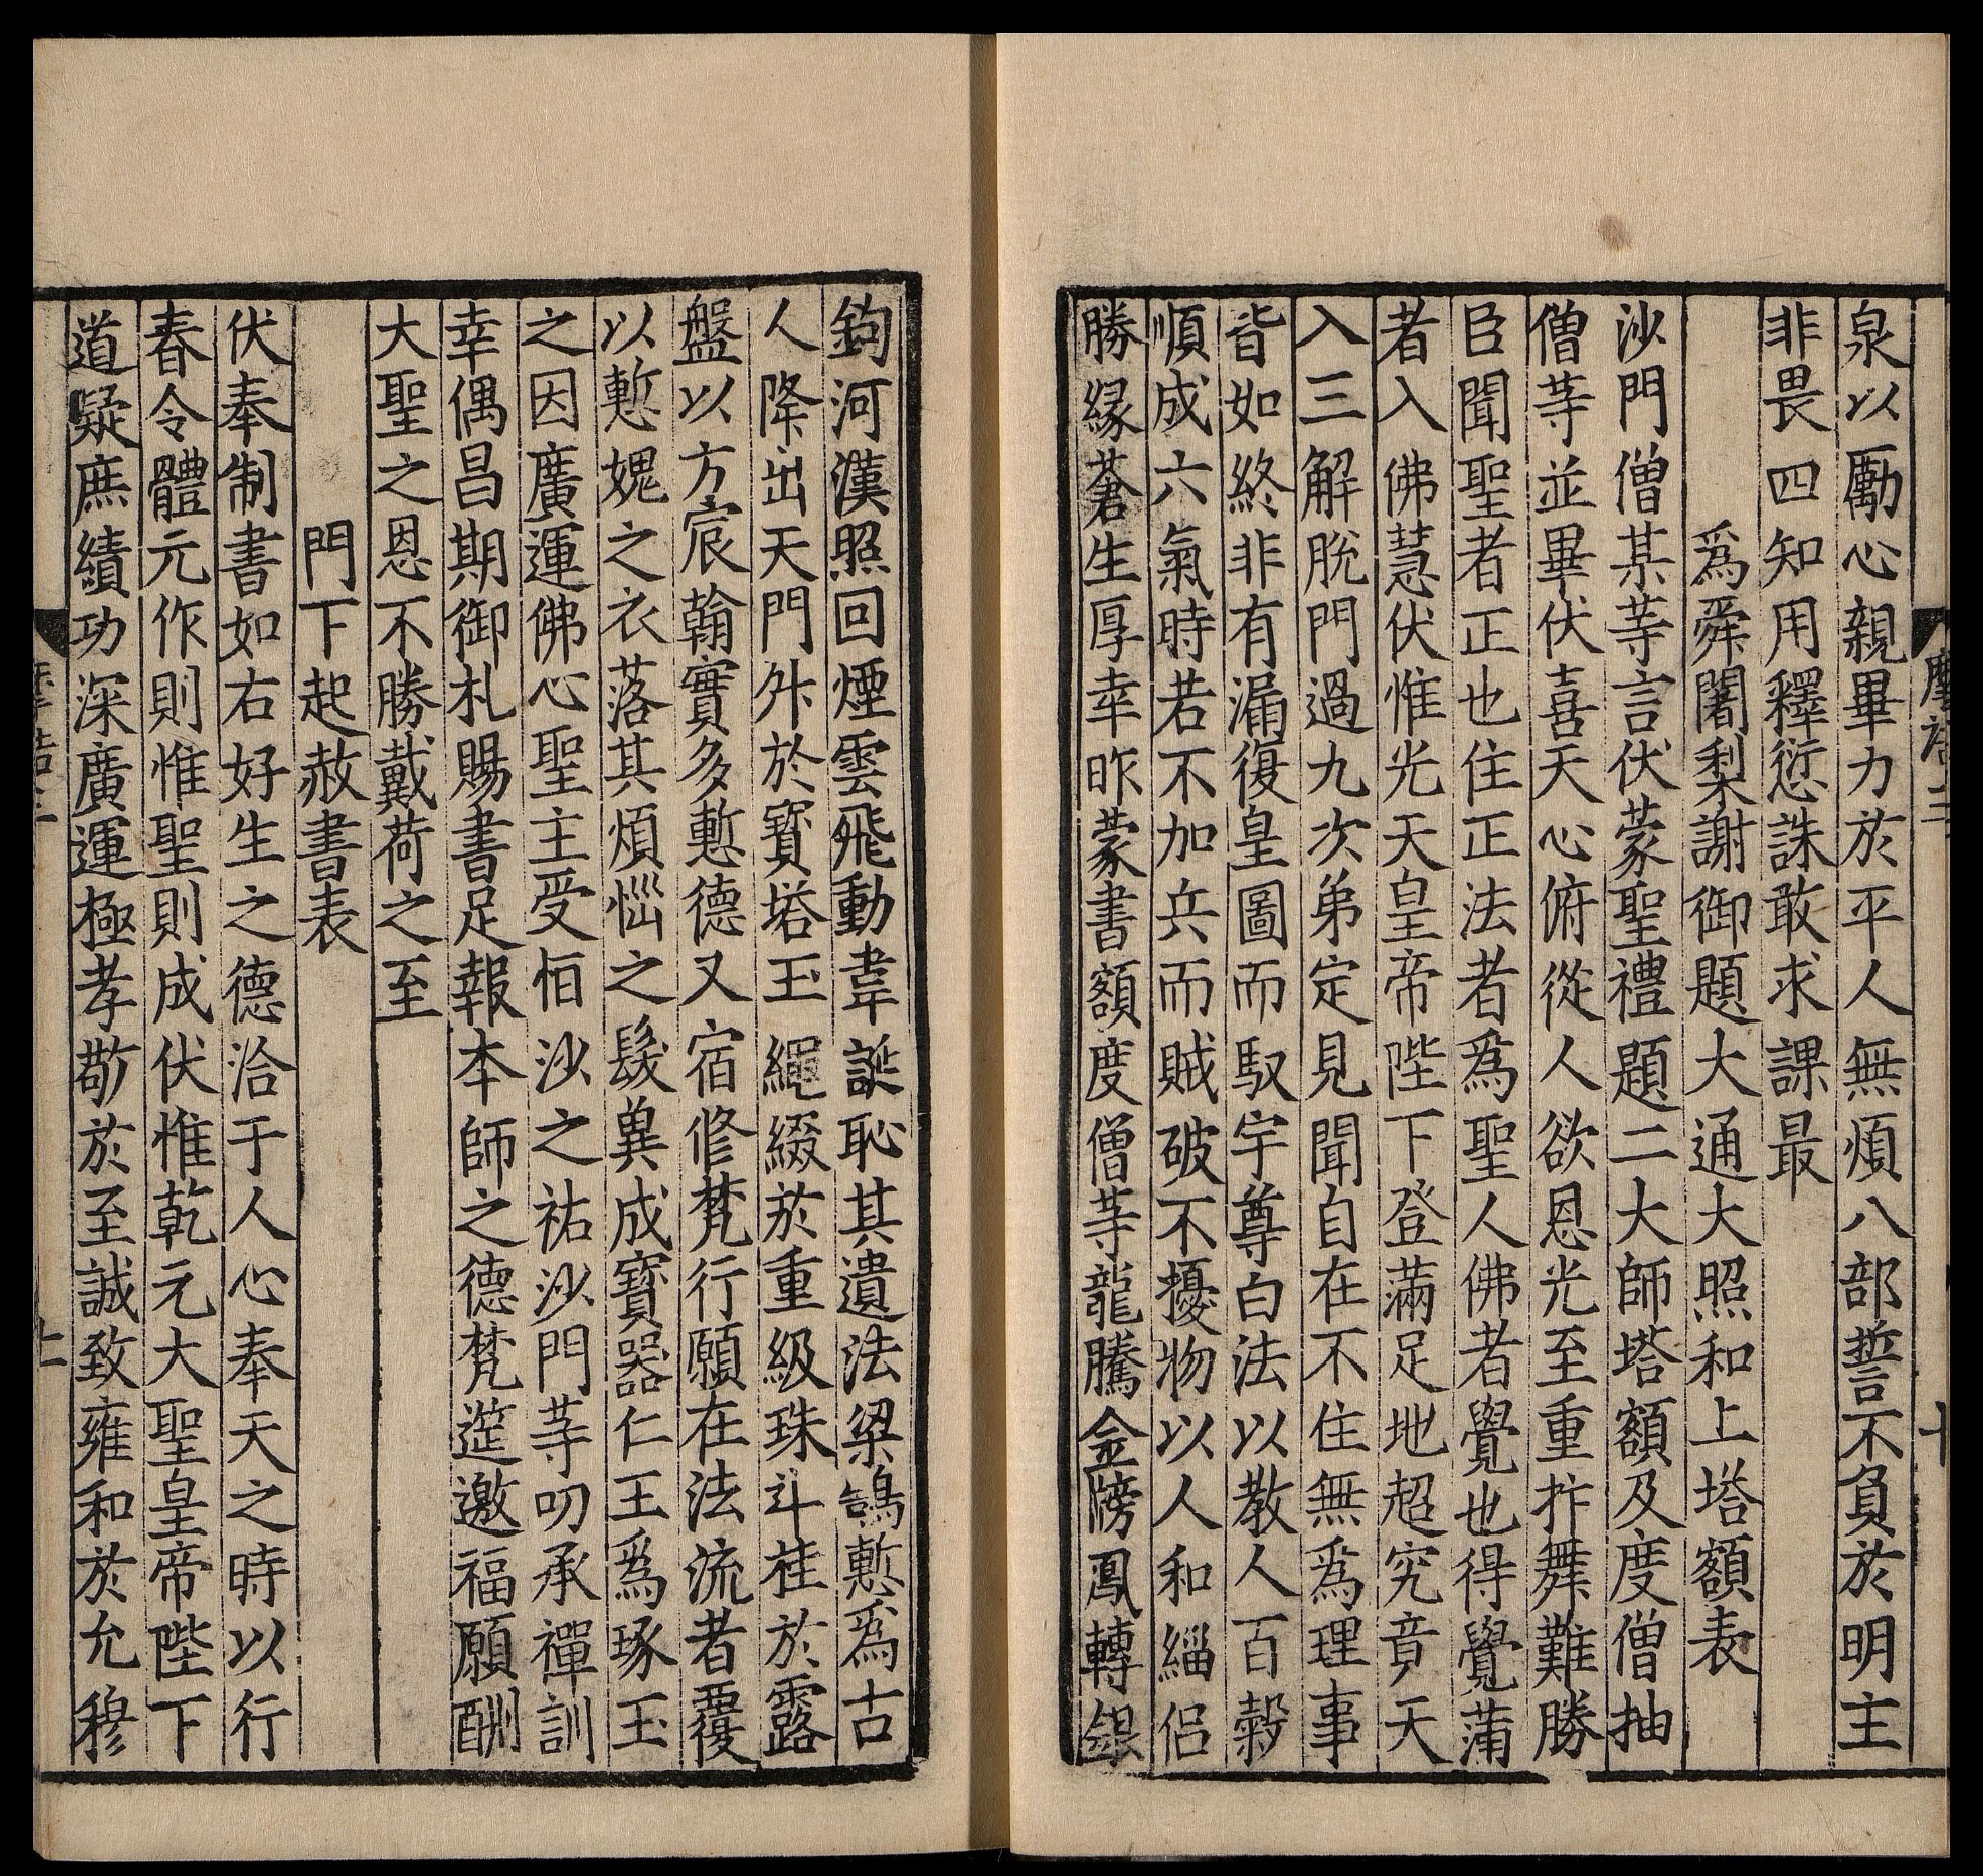 泉以勵心親畢力於平人無煩八部誓不負於明主
非畏四知用釋愆誅敢求課最
爲舜闍梨謝御題大通大照和上塔額表
沙門僧某等言伏蒙聖禮題二大師塔額及度僧抽
僧等並畢伏喜天心俯從人欲恩光至重抃舞難勝
臣聞聖者正也住正法者爲聖人佛者覺也得覺蒲
者入佛慧伏惟光天皇帝陛下登滿足地超究竟天
入三解脫門過九次弟定見聞自在不住無爲理事
皆如終非有漏復皇圖而馭宇尊白法以教人百穀
順成六氣時若不加兵而賊破不擾物以人和緇侣
勝緣蒼生厚幸昨蒙書額度僧等龍騰金牓鳳轉銀
鉤河漢照回煙雲飛動韋誕恥其遺法梁鵠慙爲古
人降出天門外於寳塔玉繩綴於重級珠斗挂於露
盤以方宸翰實多慙德又宿修梵行願在法流者覆
以慙媿之衣落其煩惱之髮兾成寳器仁王爲琢玉
之因廣運佛心聖主受恒沙之祐沙門等叨承禪訓
幸偶昌期御札賜書足報本師之德梵筵邀福願酬
大聖之恩不勝戴荷之至
門下起赦書表
伏奉制書如右好生之德洽于人心奉天之時以行
春令體元作則惟聖則成伏惟乾元大聖皇帝陛下
道凝庶績功深廣運極孝敬於至誠致雍和於允穆
摩詰二
十